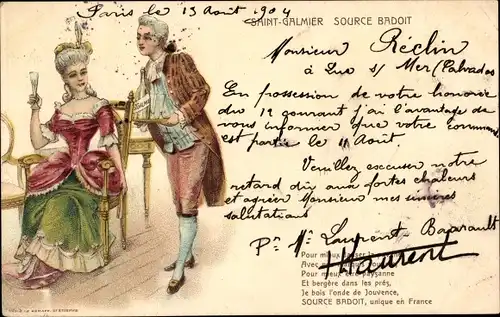 Paris le 13 Août 1904
SAINT-GALMIER SOURCE BADOIT
Monsieur Réclin
à Luc s/ Mer (Calvados
En possession de votre honorée
du 12 courant j'ai l'avantage de
vous informer que votre commande
est partie le 11 Août.
Veuillez excuser notre
retard dû aux fortes chaleurs
et agréer Monsieur mes sincères
salutations
Pr Mr Laurent
Laurent
Pour mieux
Avec
Pour mieux être paysanne
Et bergère dans les prés,
Je bois l'onde de Jouvence,
SOURCE BADOIT, unique en France